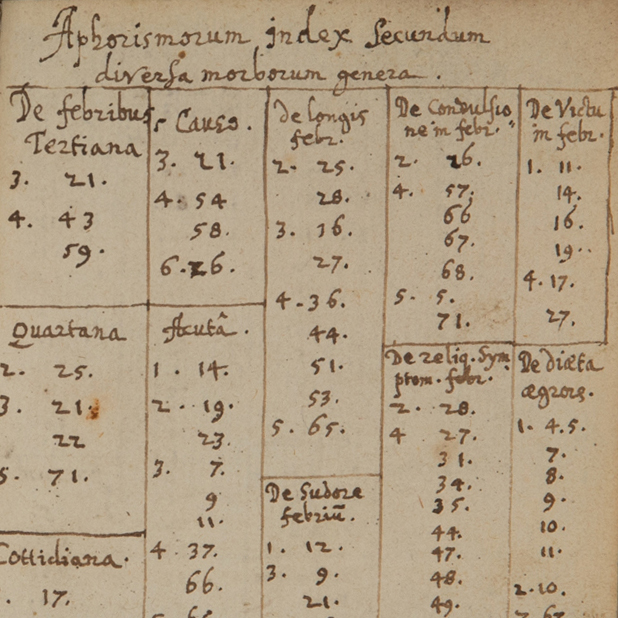 Aphorismorum index Secundum
diversa morborum genera.
De febribus
Tertiana
3. 21.
4. 43
59.
Quartana
2. 25.
3. 21.
22
5. 71.
Cottidiana.
. 17.
Causo.
3. 21.
4. 54
58.
6. 26.
Acutâ.
1. 14.
2. 19.
23.
3. 7.
9
11.
4 37.
66.
De longis
febr.
2. 25.
28.
3. 16.
27.
4. 36.
44.
51.
53.
5. 65.
De Sudore
febriū.
1. 12.
3. 9.
21.
De Convulsio
ne in febr.
2. 26.
4. 57.
66
67.
68.
5. 5.
71.
De reliq. Sym
ptom. febr.
2. 28.
4 27.
31.
34.
35.
44.
47.
48.
49.
De Victu
in febr.
1. 11.
14.
16.
19.
4. 17.
27.
De diæta
ægrors.
1. 4. 5.
7.
8.
9.
10.
11.
2. 10.